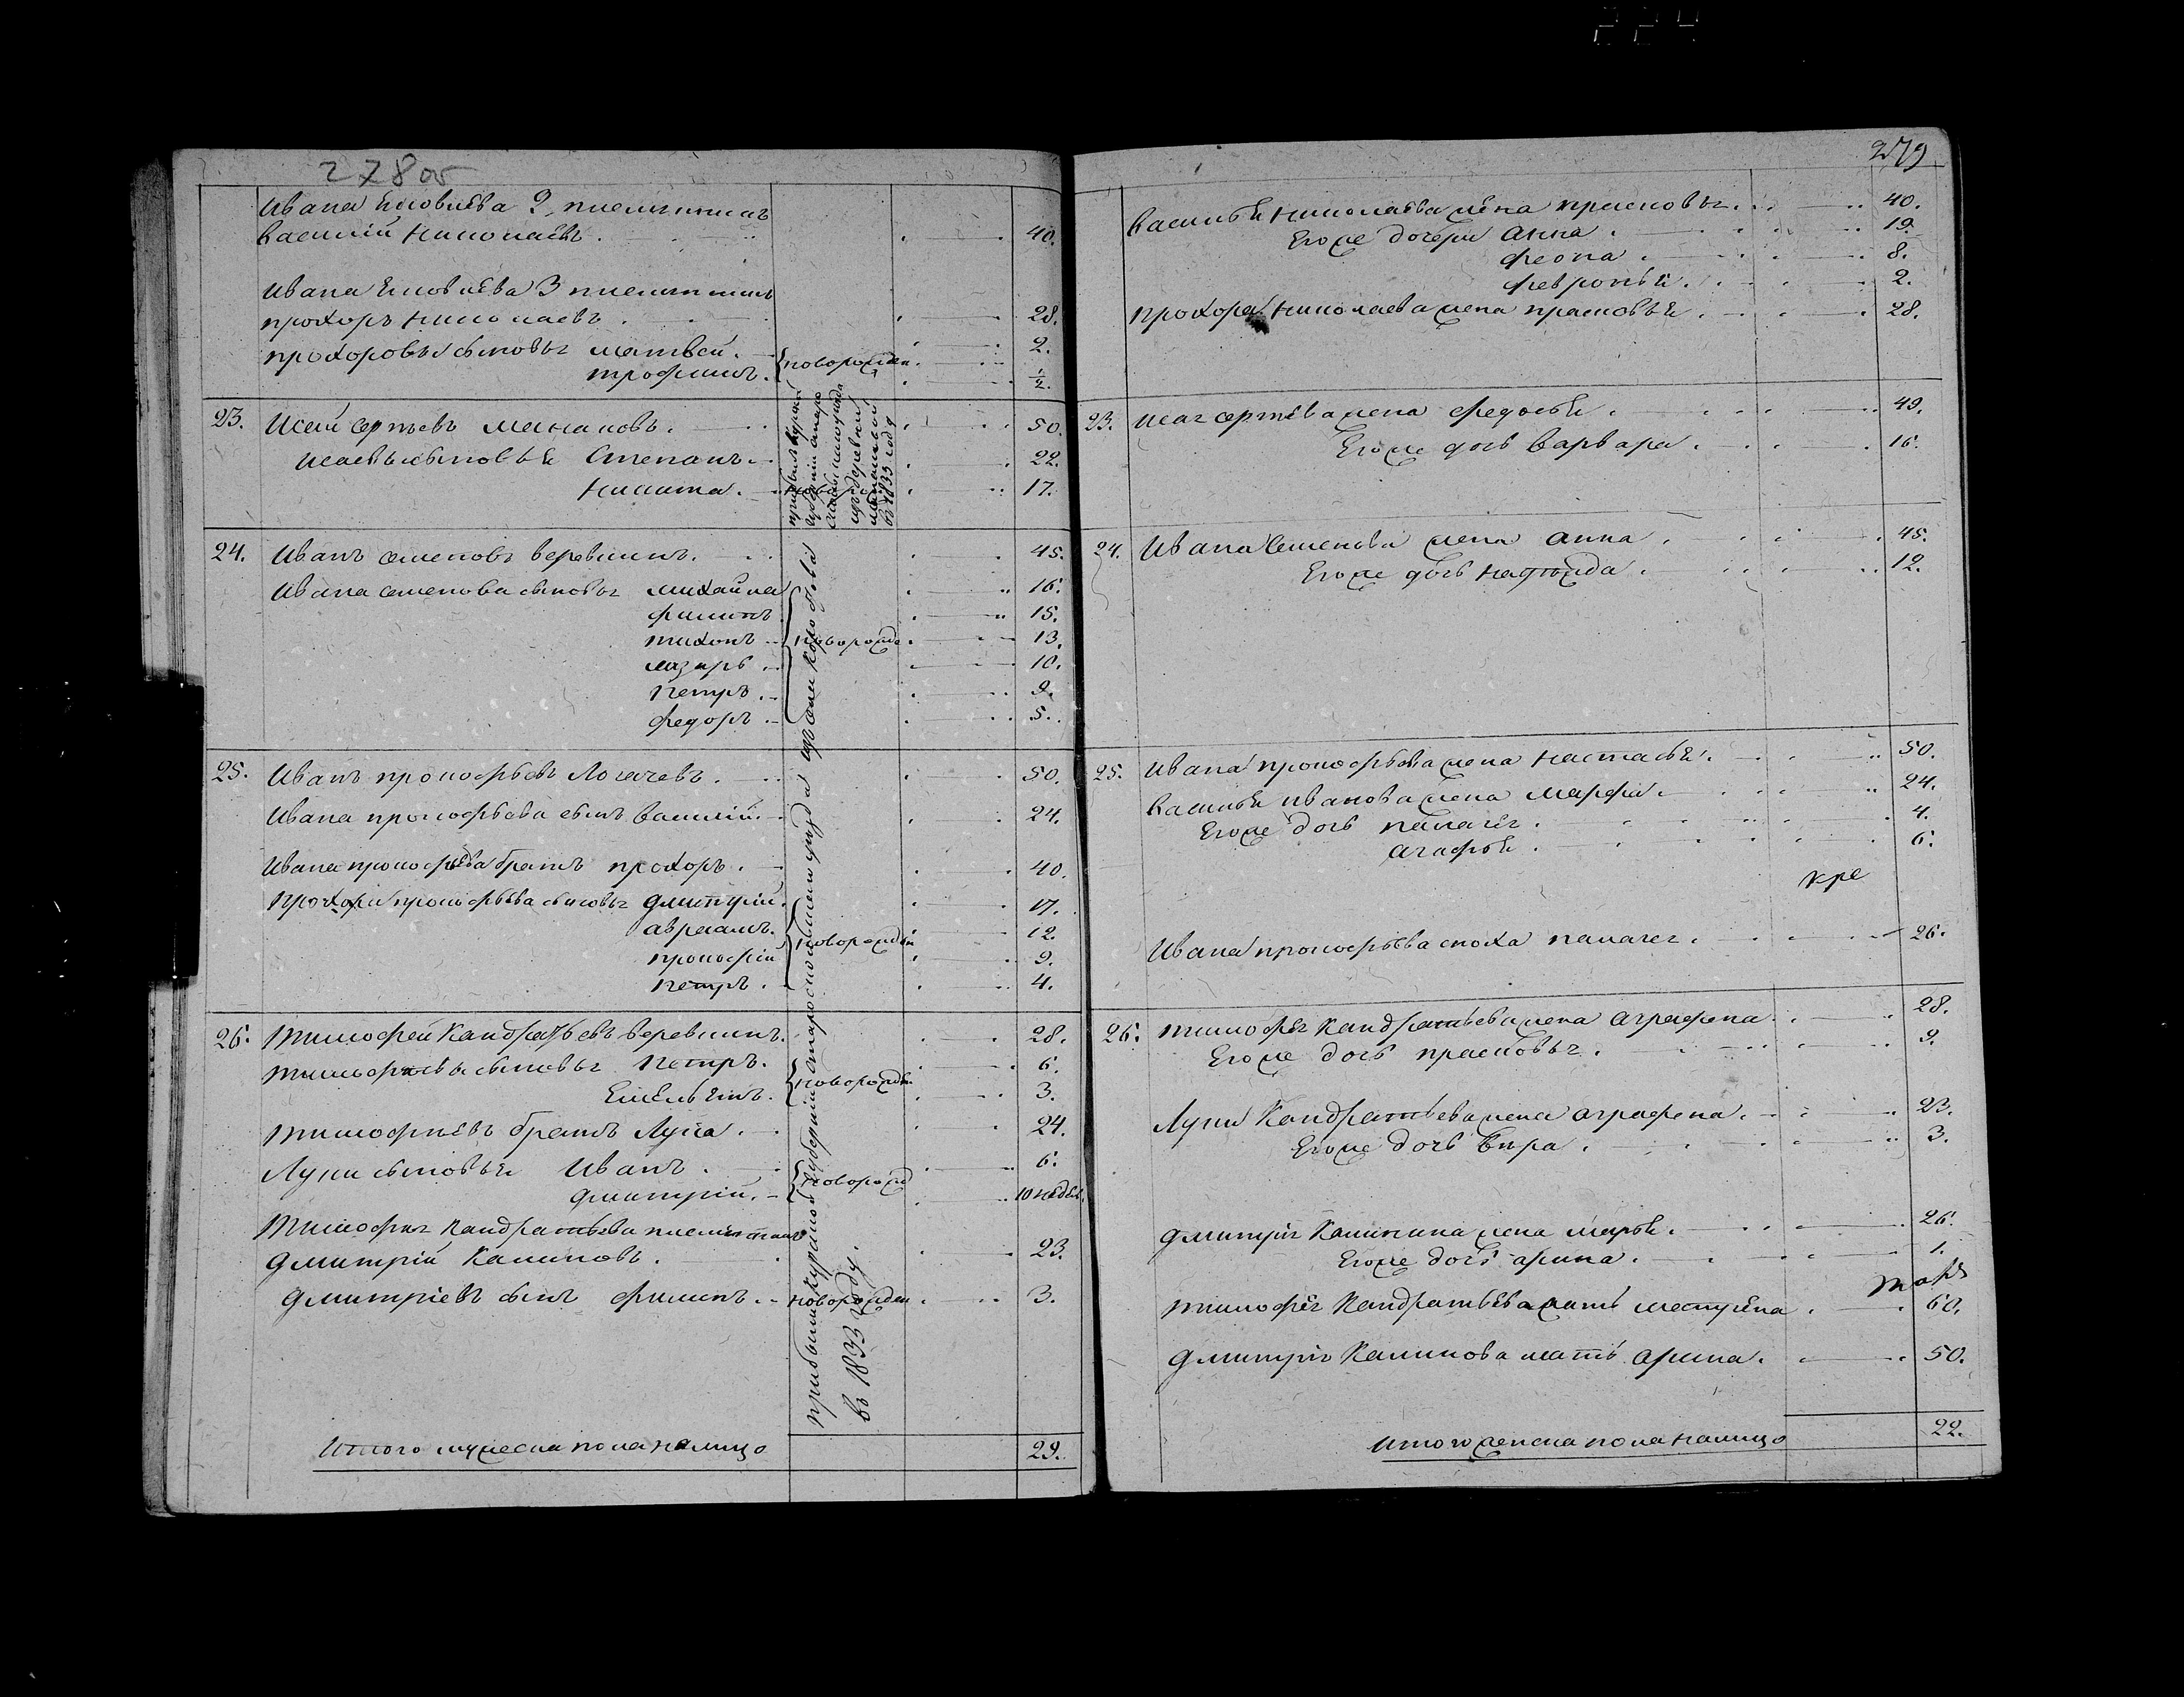 278 об
Ивана Яковлева 2, племянникъ
Василий Николаевъ . 40.
Ивана Яковлева 3 племянникъ
Прохоръ Николаевъ . 28.
Прохоровы сыновья Матвей . 2.
Трофимъ . новорожден. 1/2.
23. Исай Сергеевъ 50.
Исаевы сыновья Степанъ . 22.
Никита . 17.
прибылъ Курской губернии Старо
изъ деревни
въ 1833 году
24. Иванъ Семеновъ Веревкинъ . 45.
Ивана Семенова сыновья Михайла 16.
Филипъ 15.
Тихонъ новорожде. 13.
Лазарь . 10.
Петръ . 9.
Федоръ . 5.
25. Иванъ Прокофьевъ Логачевъ . 50.
Ивана Прокофьева сынъ Василий . 24.
Ивана Прокофьева братъ Прохоръ . 40.
Прохора Прокофьева сыновья Дмитрий . 17.
Авраамъ . новорожден 12.
Прокофий 9.
Петръ . 4.
26. Тимофей Кандратьевъ Веревкинъ . 28.
Тимофеевы сыновья Петръ . 6.
Емельянъ . новорожден 3.
Тимофеевъ братъ Лука . 24.
Луки сыновья Иванъ . 6.
Дмитрий . новорожд 10 недель.
Тимофея Кандратьева племянникъ
Дмитрий Калиновъ . 23.
Дмитриевъ сынъ Филипъ . новорожден . 3.
прибыли Курской губернии Старооскольскаго уезда изъ
въ 1833 году .
Итого мужеска пола налицо 29.
279
Василья Николаева жена Прасковья . 40.
Его же дочери Анна . 19.
Феона . 8.
Февронья . 2.
Прохора Николаева жена Прасковья . 28.
23. Исая Сергеева жена Федосья . 49.
Его же дочь Варвара . 16.
24. Ивана Семенова жена Анна . 45.
Его же дочь Надежда . 12.
25. Ивана Прокофьева жена Настасья . 50.
Василья Иванова жена Марфа . 24.
Его же дочь Палагея . 4.
Агафья . 6.
кре
Ивана Прокофьева сноха Палагея . 26.
26. Тимофея Кандратьева жена Аграфена . 28.
Его же дочь Прасковья . 9.
Луки Кандратьева жена Аграфена . 23.
Его же дочь Вера . 3.
Дмитрия Калинина жена Марья . 26.
Его же дочь Арина . 1.
Тимофея Кандратьева мать 60.
Дмитрия Калинова мать Арина . 50.
Итого женска пола налицо 22.